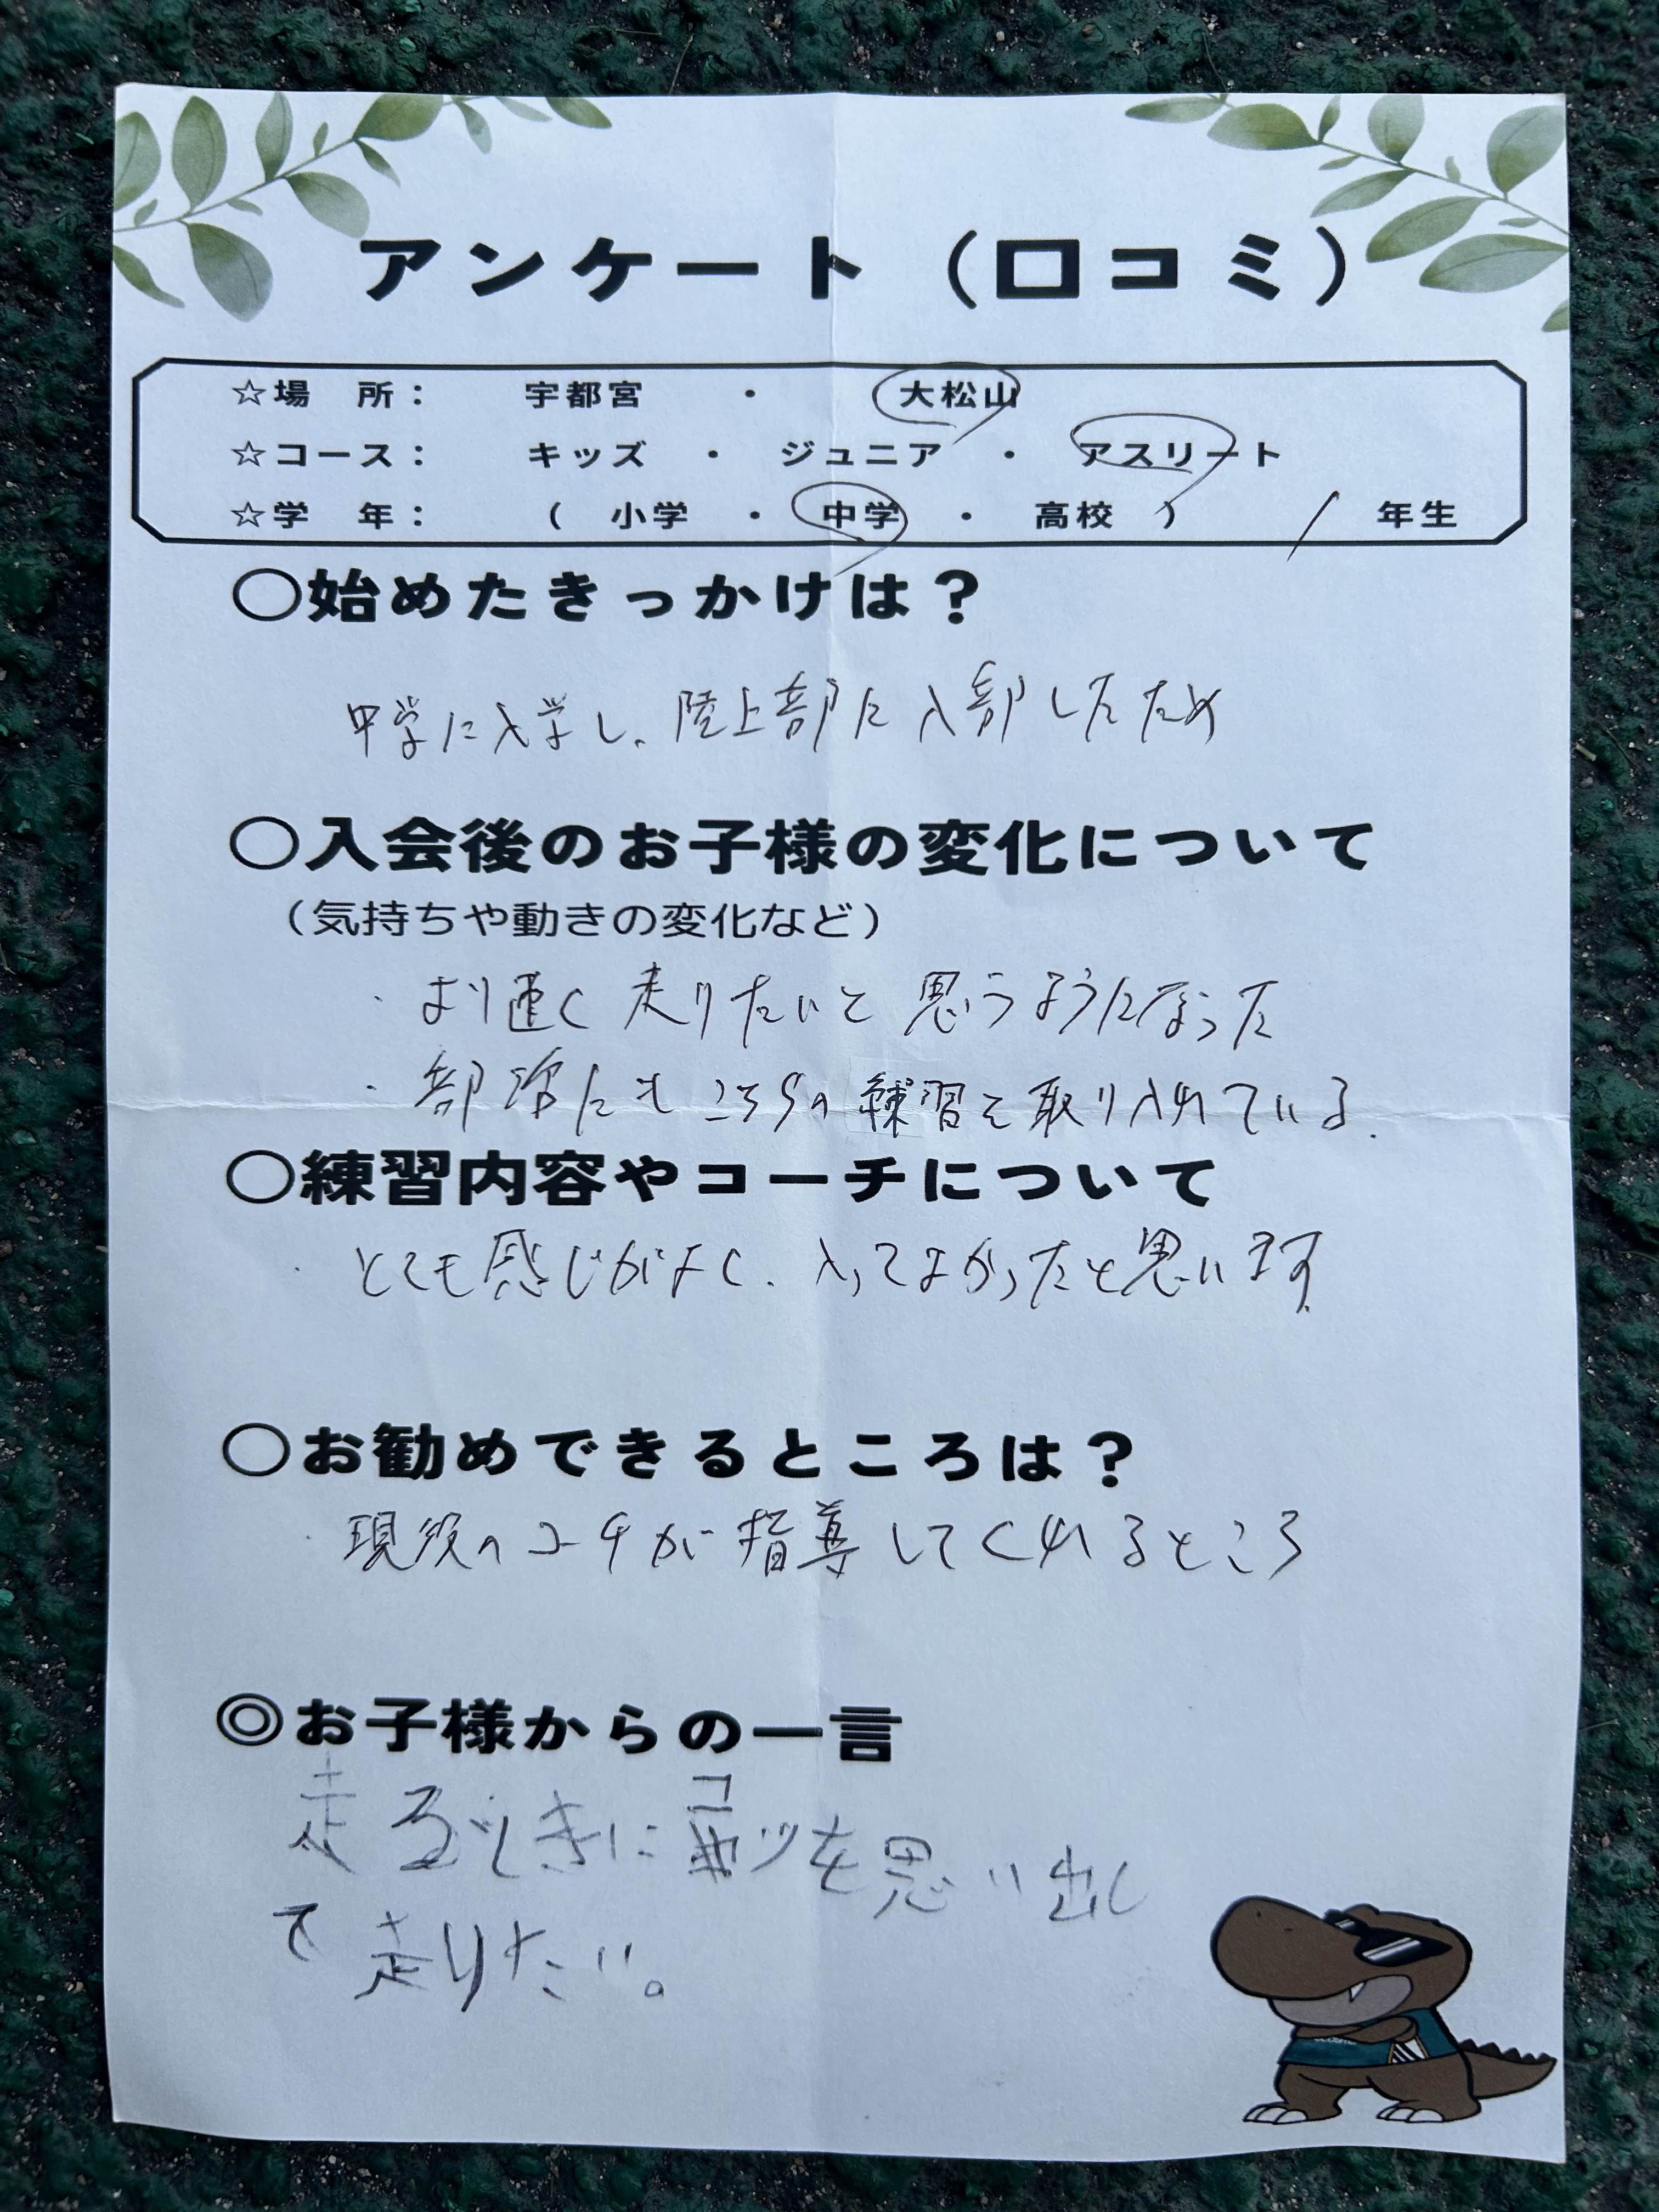 アンケート（口コミ）
☆場　所：　宇都宮　・　大松山
☆コース：　キッズ　・　ジュニア　・　アスリート
☆学　年：　（　小学　・　中学　・　高校　）　1　年生
○始めたきっかけは？
中学に入学し、陸上部に入部したため
○入会後のお子様の変化について
（気持ちや動きの変化など）
・より速く走りたいと思うようになった
・部活にもこちらの練習を取り入れている。
○練習内容やコーチについて
・とても感じがよく、入ってよかったと思います
○お勧めできるところは？
・現役のコーチが指導してくれるところ
◎お子様からの一言
走るときにコツを思い出し
て走りたい。